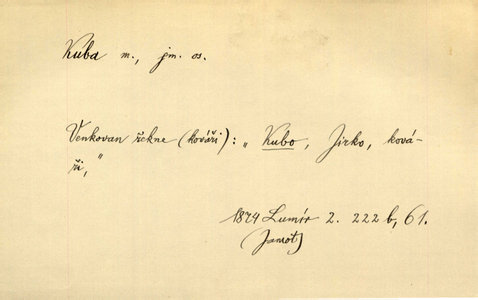 Kuba m., jm. os.
Venkovan řekne (kováři): „Kubo, Jirko, ková-
ři,"
1874 Lumír 2. 222 b, 61.